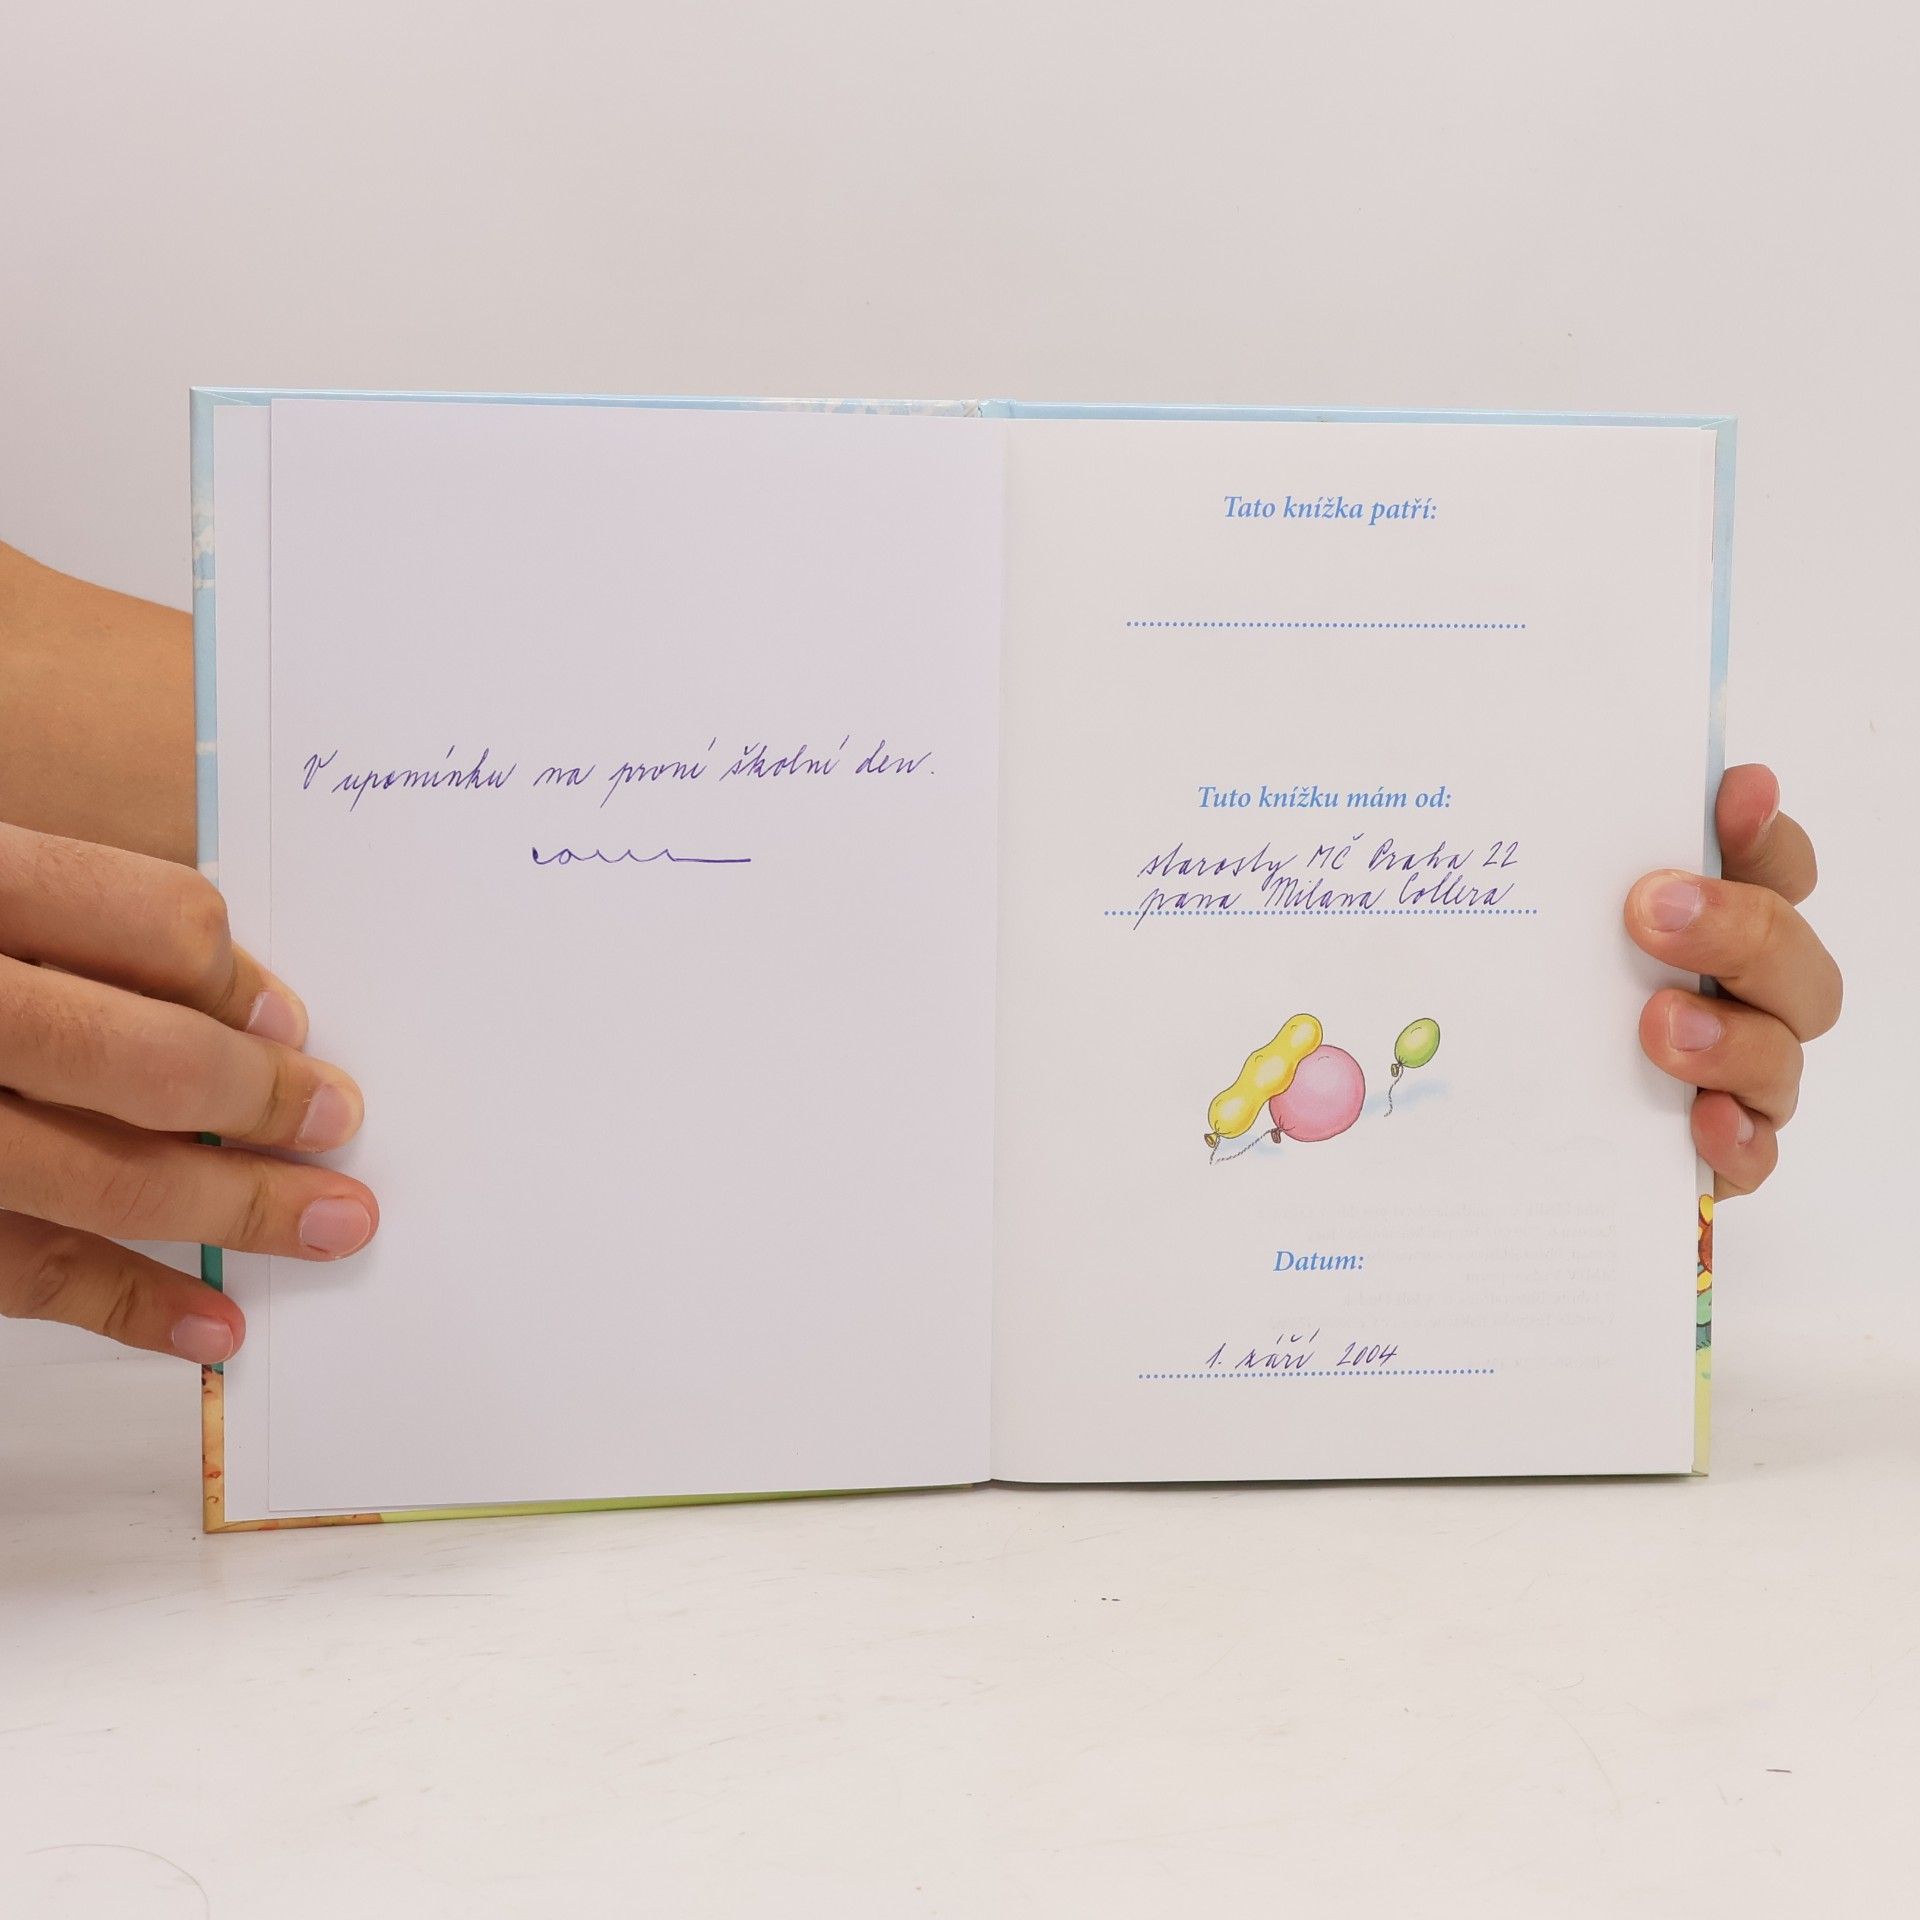 V upomínku na první školní den.
Tato knížka patří:
Tuto knížku mám od:
starosty MČ Praha 22
pana Milana Collera
Datum:
1. září 2004